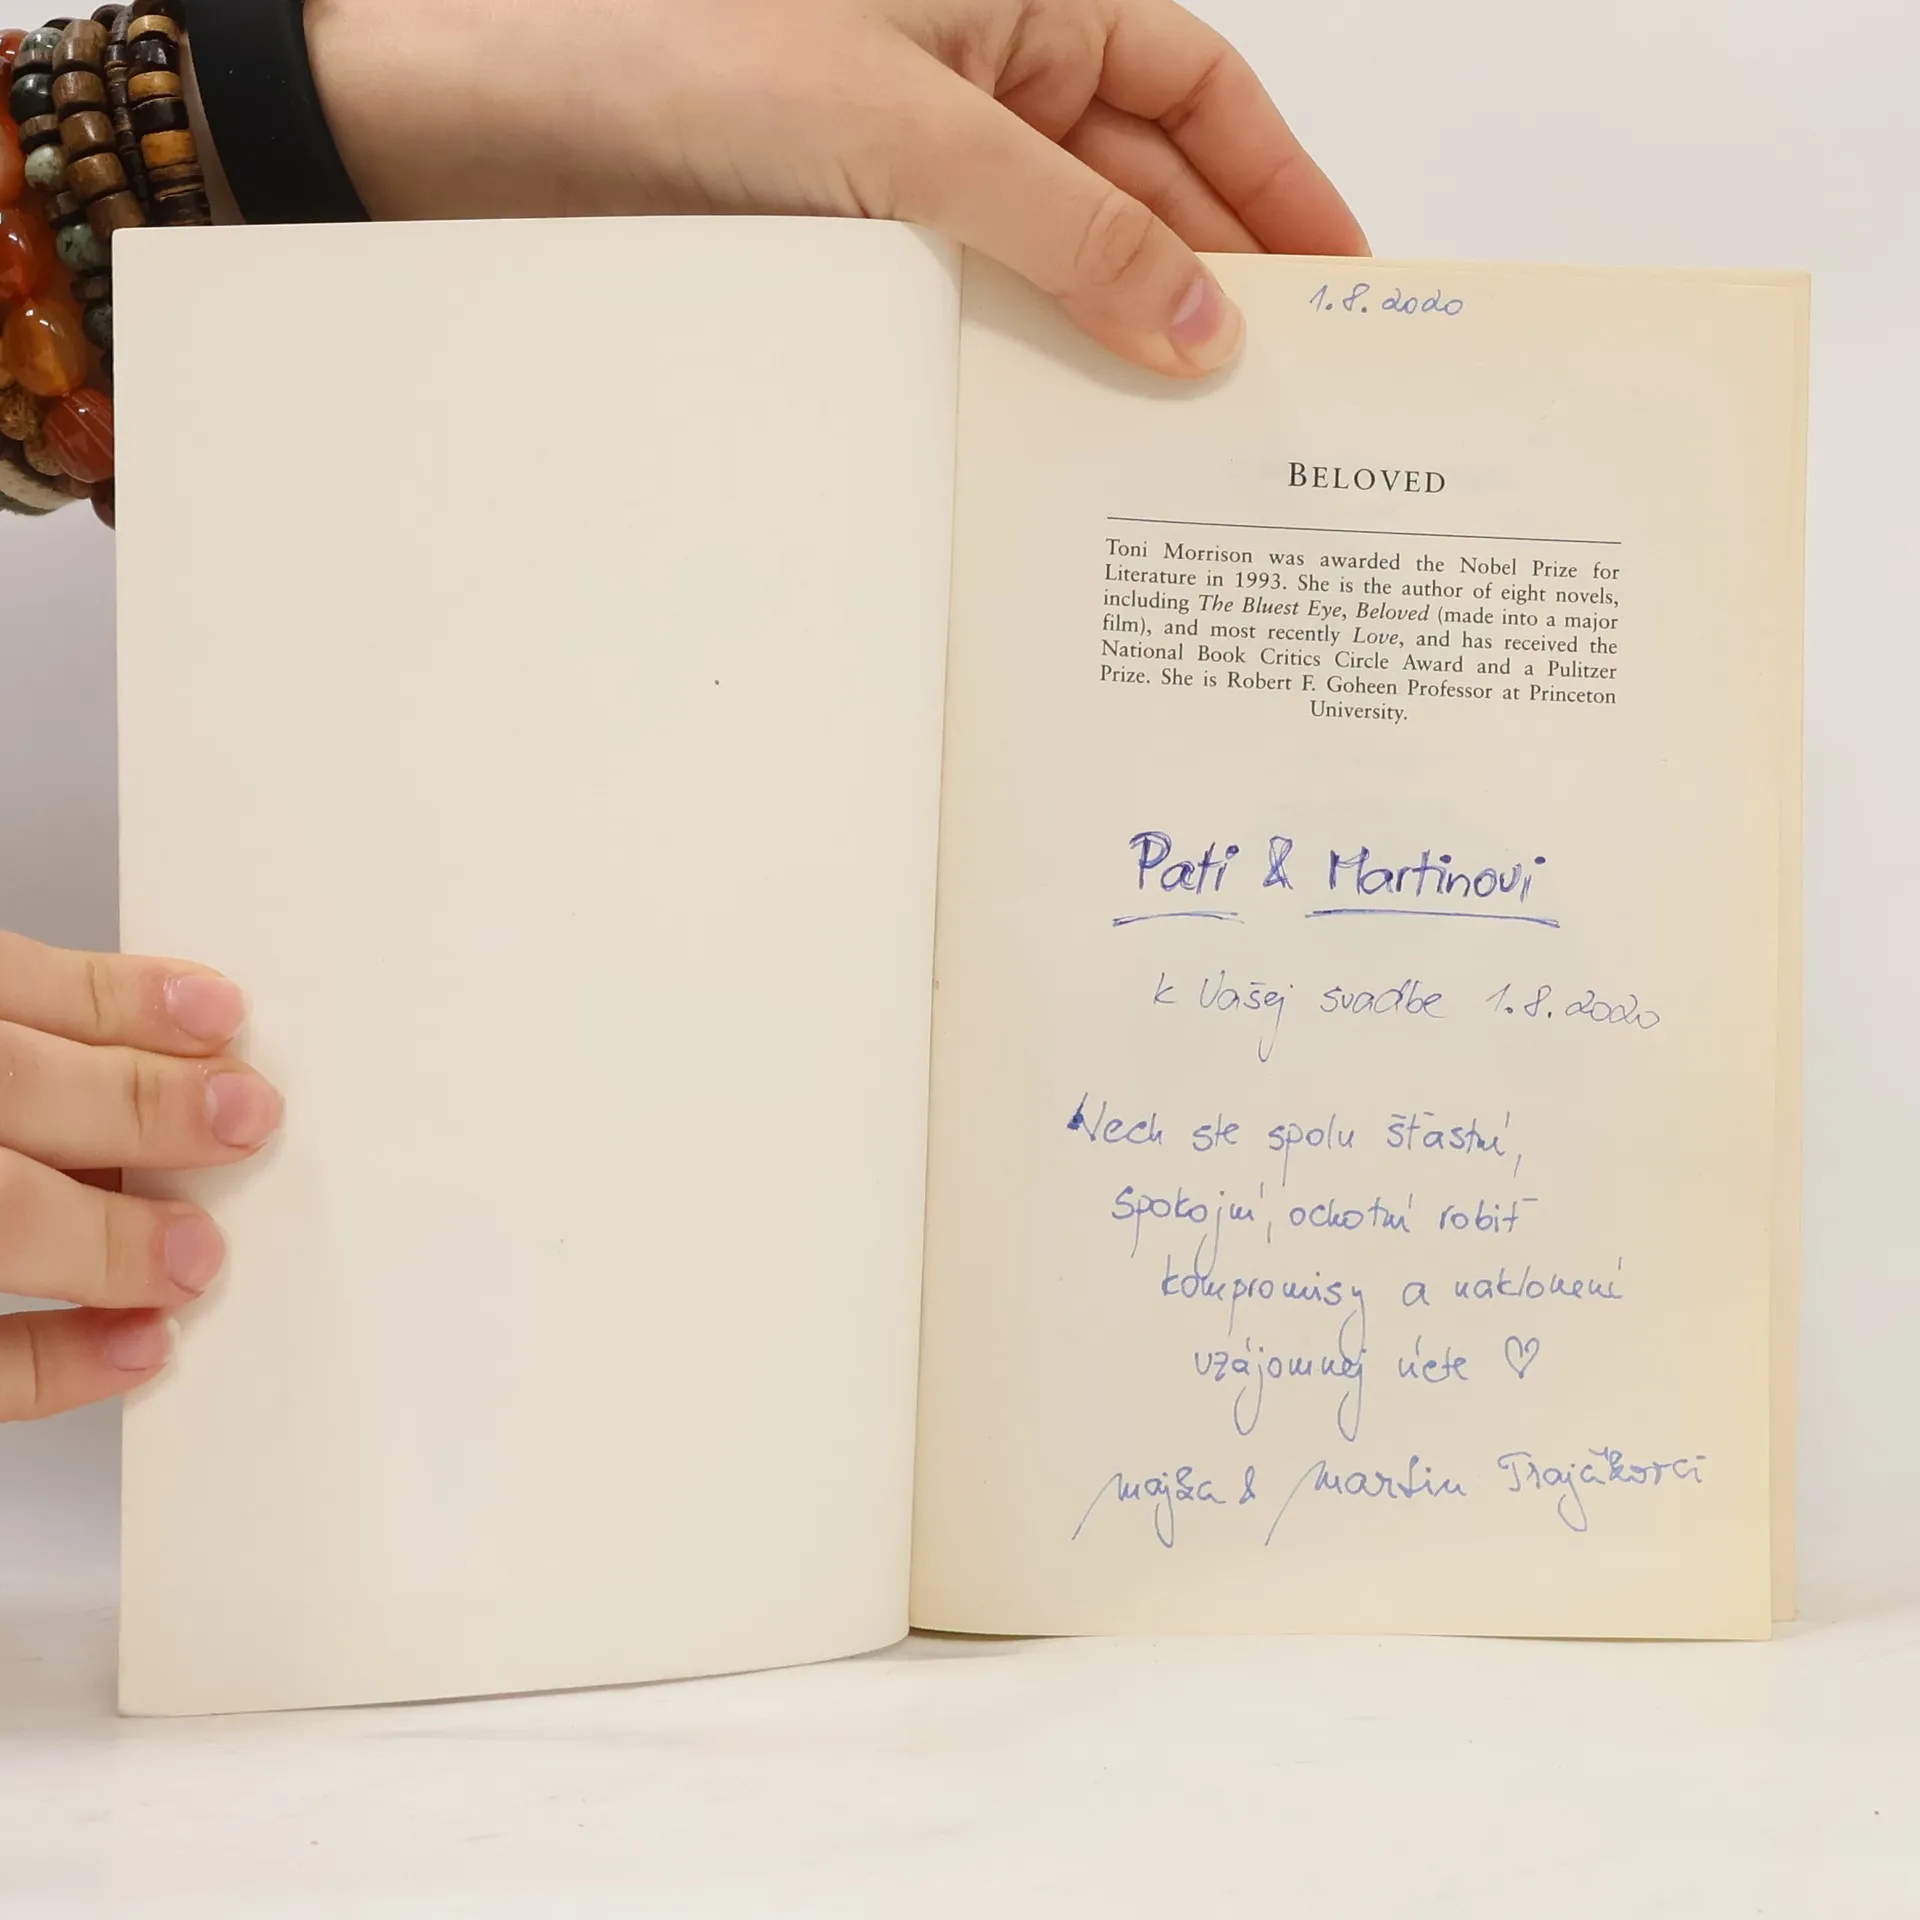 1. 8. 2020
BELOVED
Toni Morrison was awarded the Nobel Prize for
Literature in 1993. She is the author of eight novels,
including The Bluest Eye, Beloved (made into a major
film), and most recently Love, and has received the
National Book Critics Circle Award and a Pulitzer
Prize. She is Robert F. Goheen Professor at Princeton
University.
Pati & Martinovi
k Vašej svadbe 1. 8. 2020
Nech ste spolu šťastní,
spokojní, ochotní robiť
kompromisy a naklonení
vzájomnej úcte ♡
Majka & Martin